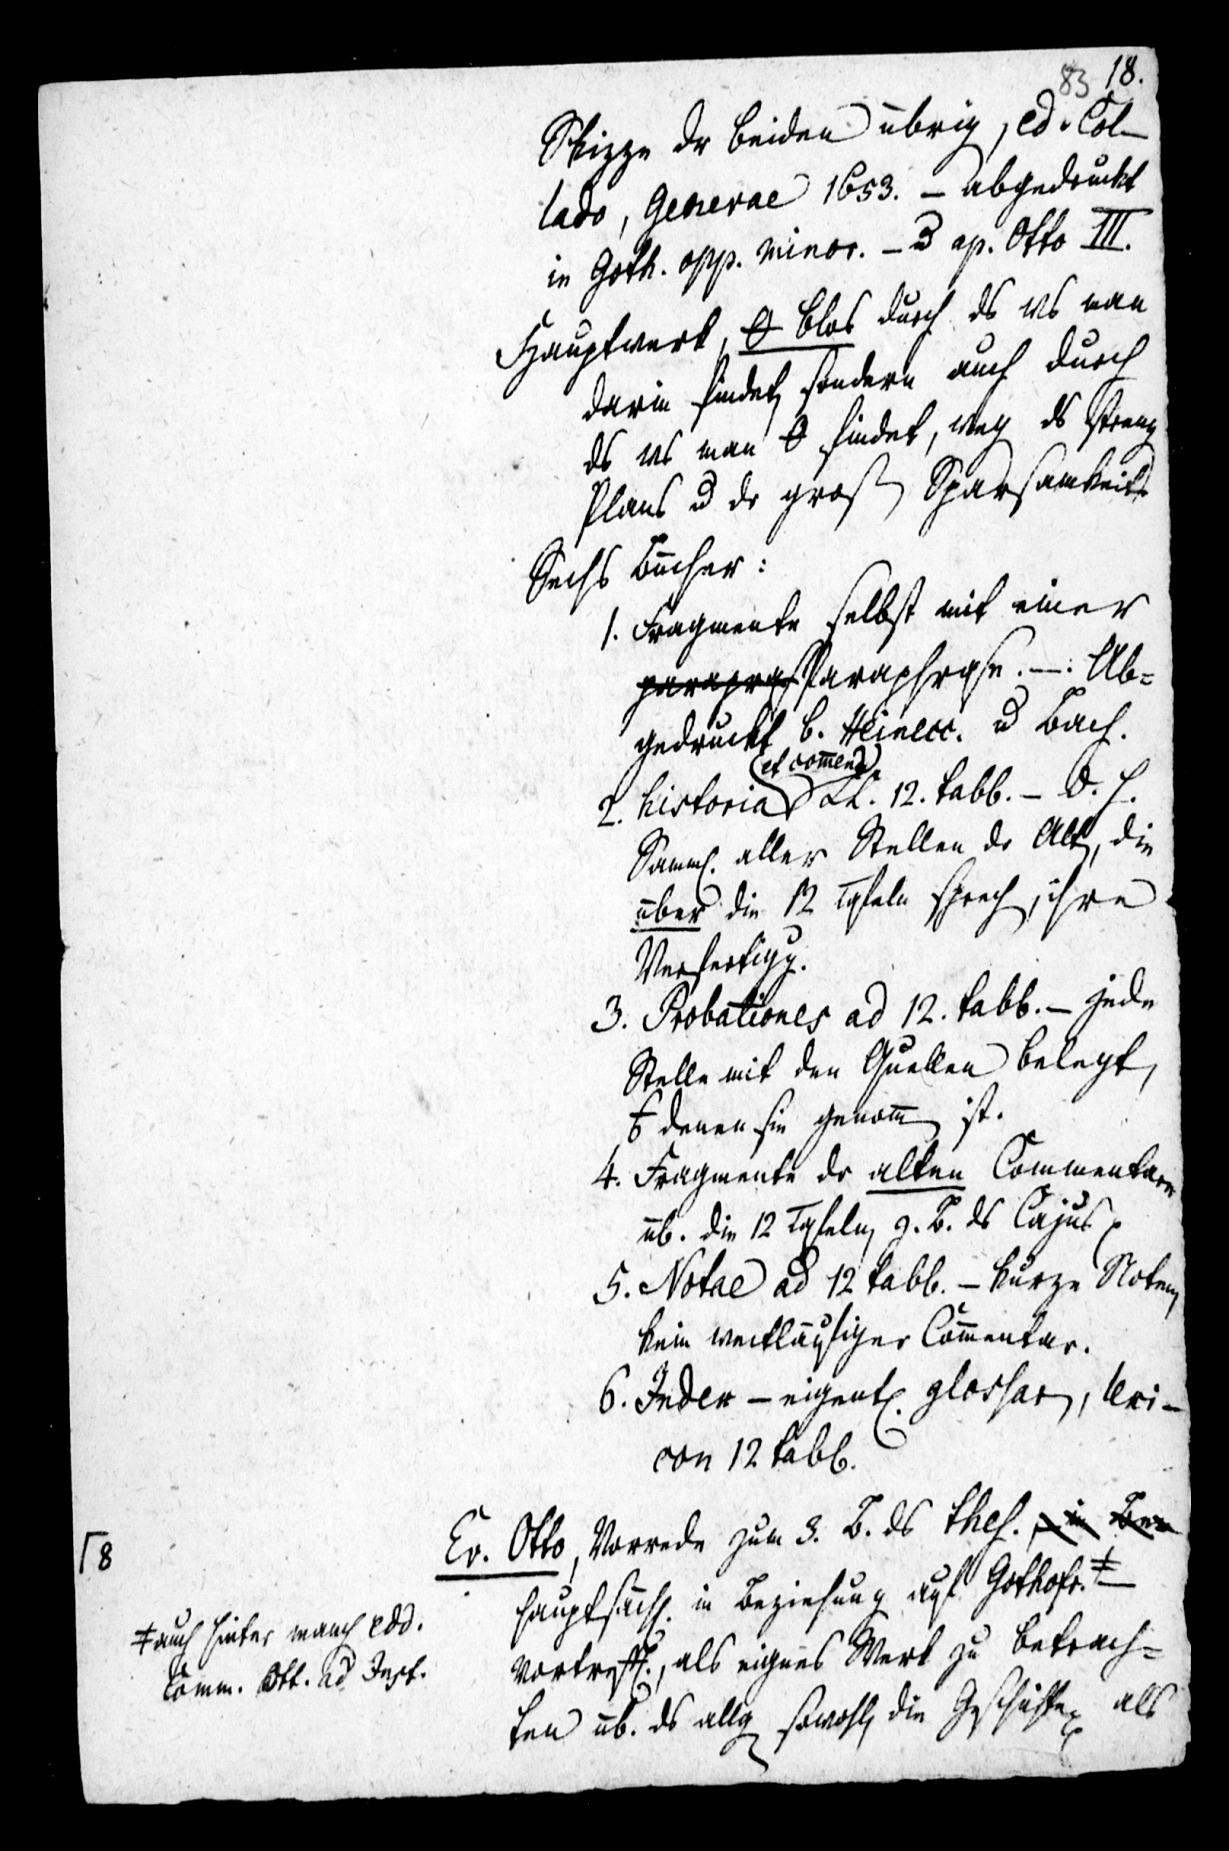 83 18.
Skizze dr beiden übrig, ed. Col-
lado, Genevae 1653. – abgedruckt
in Goth. opp. minor. – u ap. Otto III.
Hauptwerk, blos durch ds ws man
darin findet, sondern auch durch
ds ws man findet, weg ds streng
Plans u dr groß Sparsamkeit
Sechs Bücher:
1. Fragmente selbst mit einer
paragraf Paraphrase. –. Ab=
gedruckt b. Heinecc. u Bach.
(et commen)
2. historia LL. 12. tabb. – d. h.
Samml. aller Stellen dr Alt, die
über die 12 Tafeln sprech, ihre
Verfertigg.
3. Probationes ad 12. tabb. – jede
Stelle mit den Quellen belegt,
denen sie genomm ist.
4. Fragmente dr alten Commentare
üb. die 12 Tafeln, z. B. ds Cajus
5. Notae ad 12 tabb. – kurze Noten,
kein weitläufiger Commentar.
6. Index – eigentl. glossar, lexi-
con 12 tabb.
Ev. Otto, Vorrede zum 3. B. ds thes. , in
hauptsächl. in Beziehung auf Gothofr. ‡ –
vortreffl., als eignes Werk zu betrach=
ten üb. ds allg sowohl die Geschichte als
⌈8
‡ auch hinter manch edd.
Comm. Ott. ad Inst.